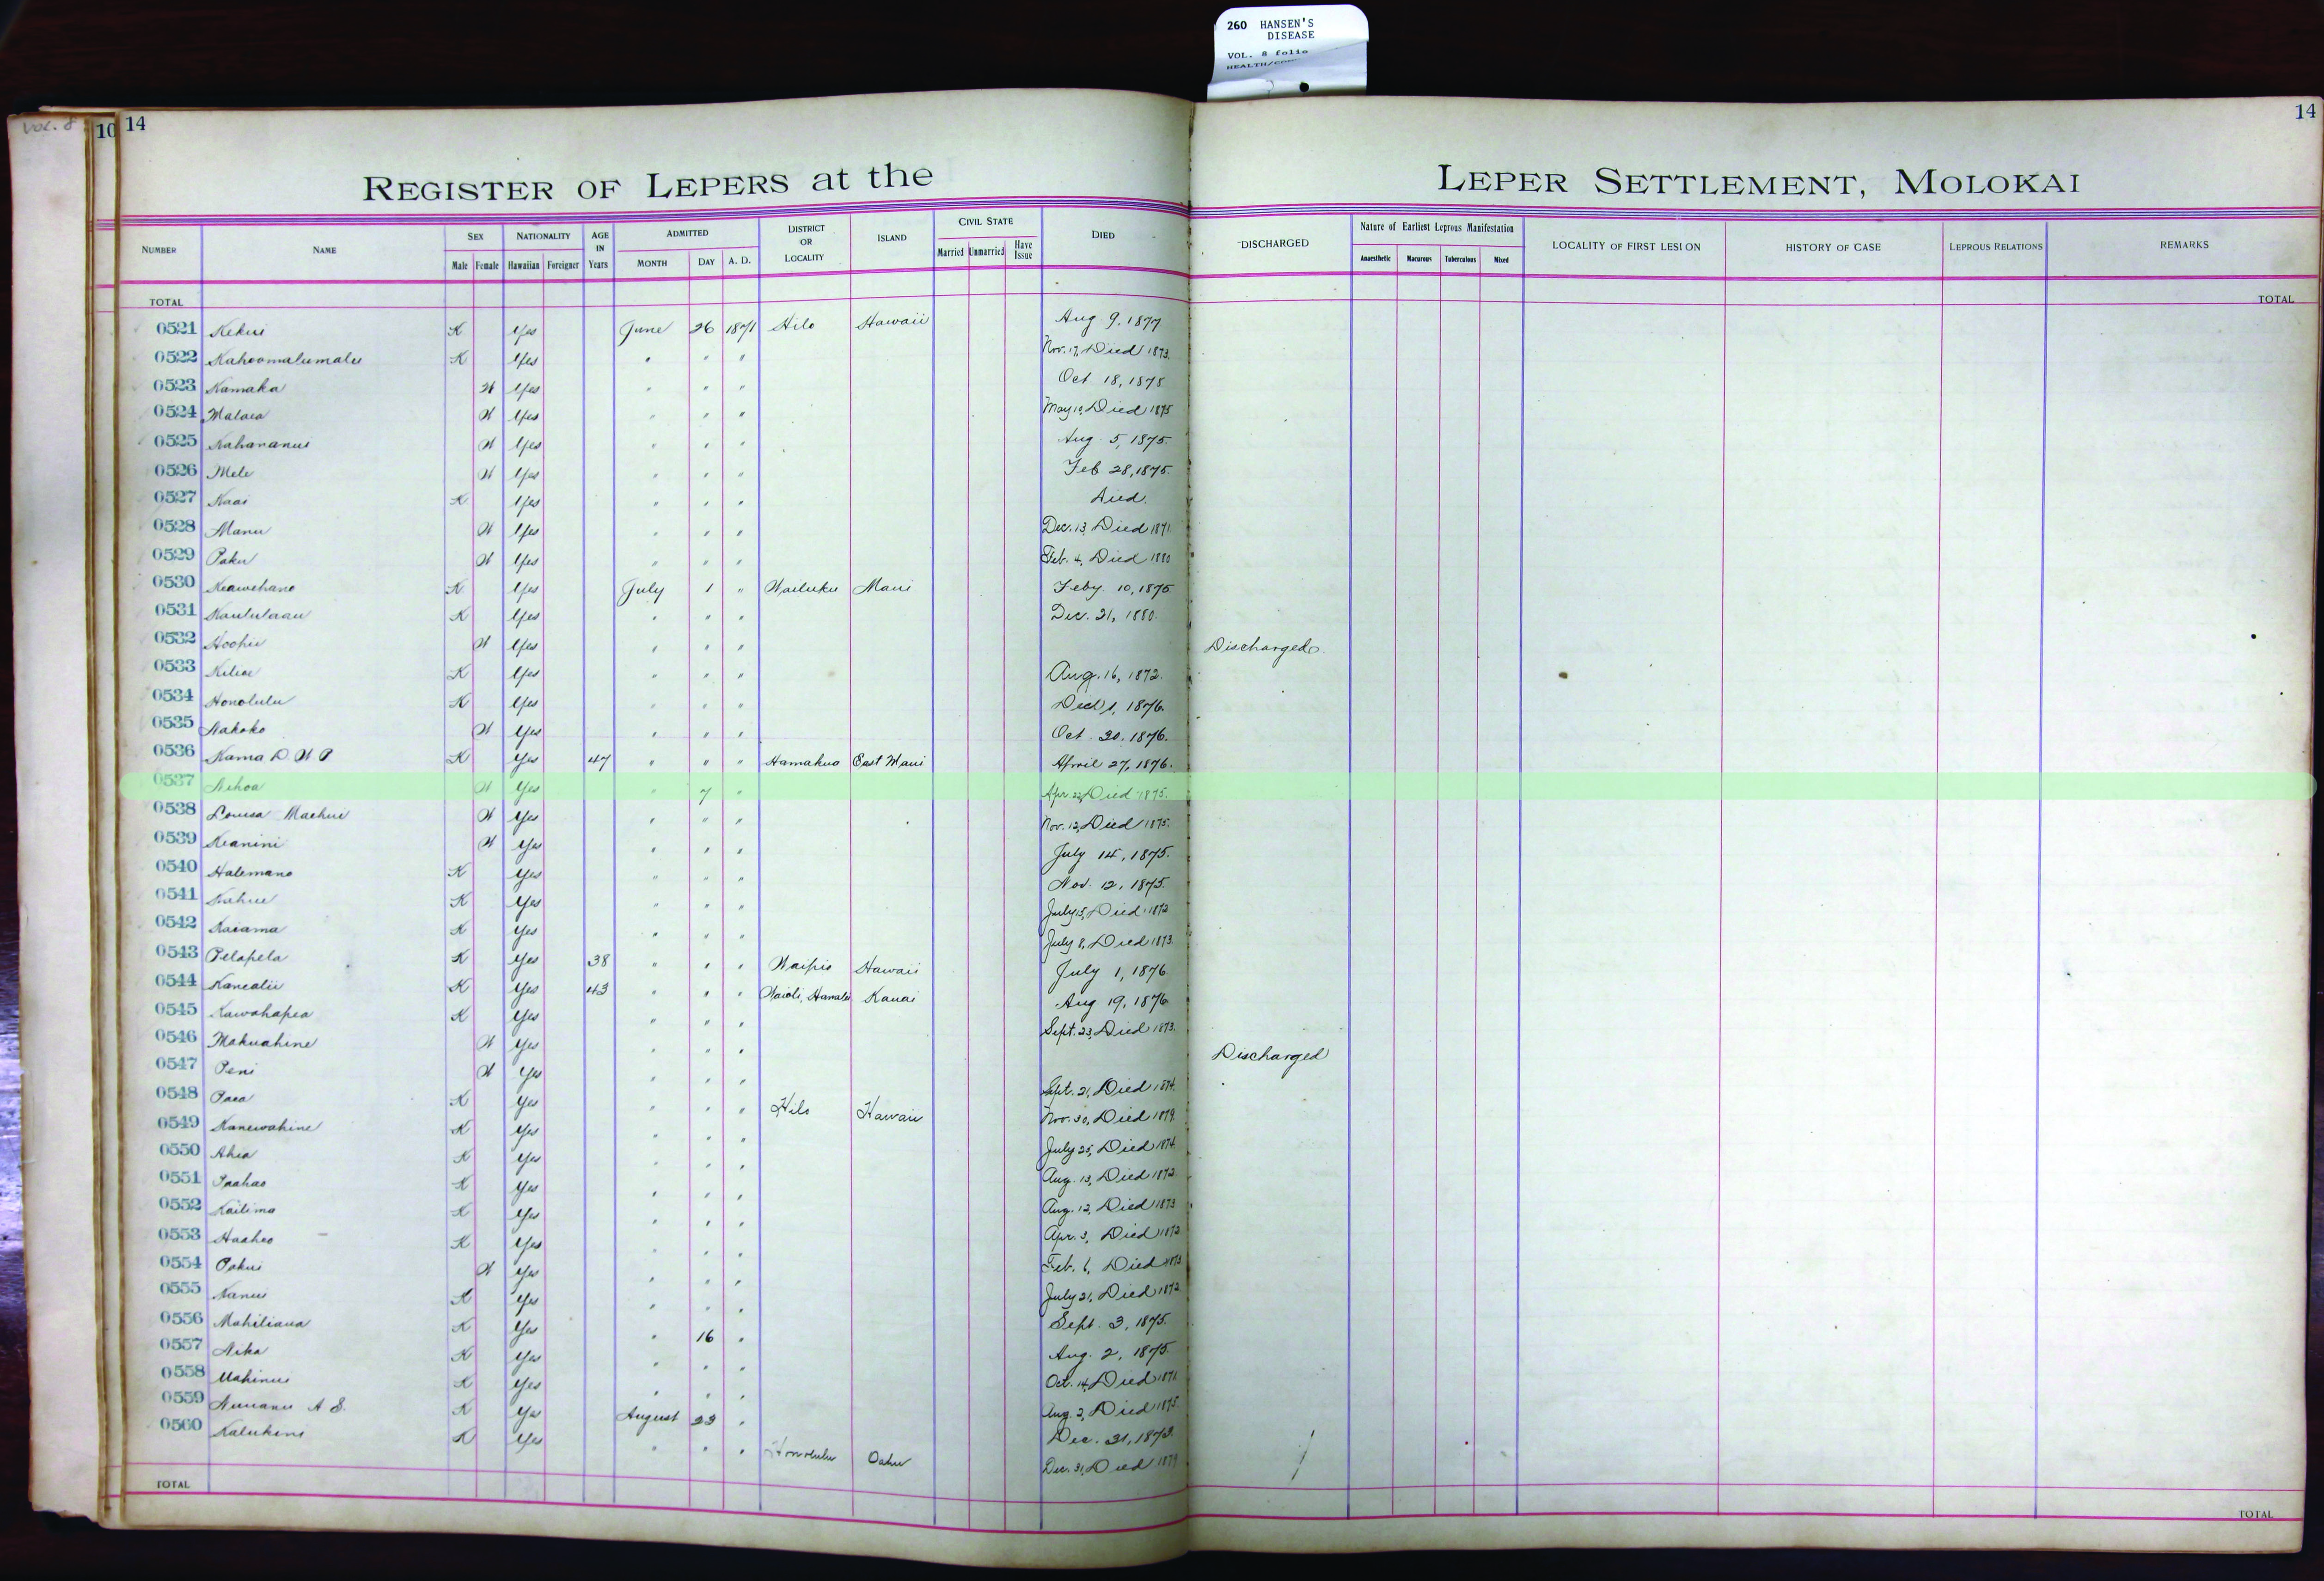 260 HANSEN'S
DISEASE
VOL. 8 folio
VOL. 8
10 14
14
REGISTER OF LEPERS at the LEPER SETTLEMENT, MOLOKAI
NUMBER NAME SEX Male Female NATIONALITY Hawaiian Foreigner AGE IN Years ADMITTED MONTH DAY A. D. DISTRICT OR LOCALITY ISLAND CIVIL STATE Married Unmarried Have Issue DIED DISCHARGED Nature of Earliest Leprous Manifestation Anaesthetic Macurous Tuberculous Mixed LOCALITY OF FIRST LESION HISTORY OF CASE LEPROUS RELATIONS REMARKS
TOTAL TOTAL
0521 Kekui K Yes June 26 1871 Hilo Hawaii Aug 9, 1877
0522 Kahoomalumalu K Yes " " " Nov. 17, Died 1873.
0523 Kamaka W Yes " " " Oct 18, 1875
0524 Malaea W Yes " " " May 10, Died 1875
0525 Kahananui W Yes " " " Aug. 5, 1875.
0526 Mele W Yes " " " Feb 28, 1875.
0527 Kaai K Yes " " " Died.
0528 Manu W Yes " " " Dec. 13, Died 1871
0529 Paku W Yes " " " Feb. 4, Died 1880
0530 Keawehano K Yes July 1 " Wailuku Maui Feby 10, 1875
0531 Kaululaau K Yes " " " Dec. 21, 1880.
0532 Hoohii W Yes " " " Discharged.
0533 Kiliae K Yes " " " Aug. 16, 1872.
0534 Honolulu K Yes " " " 1, 1876.
0535 Nakoko W Yes " " " Oct. 20, 1876.
0536 Kama D. W P K Yes 47 " " " Hamakua East Maui April 27, 1876.
0537 Nihoa W Yes " 7 " Apr. 22, Died 1875.
0538 Louisa Maehui W Yes " " " Nov. 12, Died 1875.
0539 Keanini W Yes " " " July 14, 1875.
0540 Halemano K Yes " " " Nov. 12, 1875.
0541 Kahue K Yes " " " July 15, Died 1872
0542 Kaiama K Yes " " " July 8, Died 1873.
0543 Pelapela K Yes 38 " " " Waipio Hawaii July 1, 1876
0544 Kanealii K Yes 43 " " " Waioli, Hanalei Kauai Aug 19, 1876
0545 Kawahapea K Yes " " " Sept. 23, Died 1873.
0546 Makuahine W Yes " " " Discharged
0547 Peni W Yes " " " Sept. 21, Died 1874.
0548 Paea K Yes " " " Hilo Hawaii Nov. 30, Died 1879.
0549 Kanewahine K Yes " " " July 25, Died 1874.
0550 Ahia K Yes " " " Aug. 13, Died 1872.
0551 Paahao K Yes " " " Aug. 12, Died 1873
0552 Kailima K Yes " " " Apr. 3, Died 1872
0553 Haaheo K Yes " " " Feb. 6, Died 1873
0554 Pakui W Yes " " " July 21, Died 1872
0555 Nanui K Yes " " " Sept. 3, 1875.
0556 Mahiliana K Yes " 16 " Aug. 2, 1875.
0557 Nika K Yes " " " Oct. 14, Died 1871
0558 Mahinui K Yes " " " Aug. 2, Died 1875.
0559 Nuuanu A S. K Yes August 23 " Dec. 31, 1873.
0560 Kalukini K Yes " " " Honolulu Oahu Dec. 31, Died 1879
TOTAL TOTAL